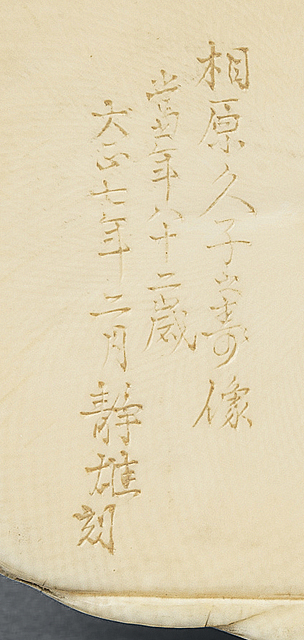 相原久子之壽像
當年八十二歳
大正七年二月 靜雄刻